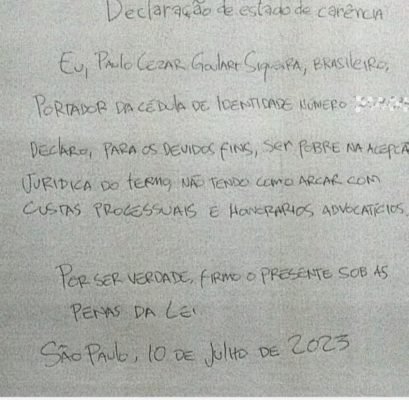 Declaração de estado de carência
Eu, PAULO CEZAR GOULART SIQUEIRA, BRASILEIRO,
PORTADOR DA CÉDULA DE IDENTIDADE NÚMERO
DECLARO, PARA OS DEVIDOS FINS, SER POBRE NA ACEPCÃ
JURIDICA DO TERMO, NÃO TENDO COMO ARCAR COM
CUSTAS PROCESSUAIS E HONORÁRIOS ADVOCATÍCIOS
POR SER VERDADE, FIRMO O PRESENTE SOB AS
PENAS DA LEI
SÃO PAULO, 10 DE JULHO DE 2023